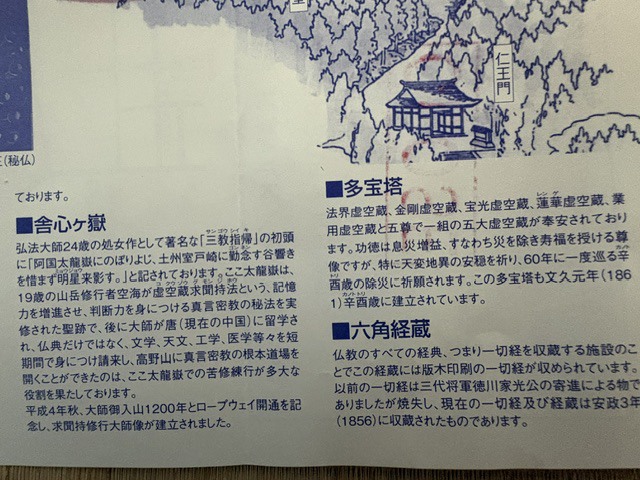 仁王門
(秘仏)
ております。
■舎心ヶ嶽
弘法大師24歳の処女作として著名な「三教指帰」の初頭
に「阿国太龍嶽にのぼりよじ、土州室戸崎に勤念す谷響き
を惜まず明星来影す。」と記されております。ここ太龍嶽は、
19歳の山岳修行者空海が虚空蔵求聞持法という、記憶
力を増進させ、判断力を身につける真言密教の秘法を実
修された聖跡で、後に大師が唐(現在の中国)に留学さ
れ、仏典だけではなく、文学、天文、工学、医学等々を短
期間で身につけ請来し、高野山に真言密教の根本道場を
開くことができたのは、ここ太龍嶽での苦修練行が多大な
役割を果たしております。
平成4年秋、大師御入山1200年とロープウェイ開通を記
念し、求聞持修行大師像が建立されました。
■多宝塔
法界虚空蔵、金剛虚空蔵、宝光虚空蔵、蓮華虚空蔵、業
用虚空蔵と五尊で一組の五大虚空蔵が奉安されており
ます。功徳は息災増益、すなわち災を除き寿福を授ける尊
像ですが、特に天変地異の安穏を祈り、60年に一度巡る辛
酉歳の除災に祈願されます。この多宝塔も文久元年(186
1)辛酉歳に建立されています。
■六角経蔵
仏教のすべての経典、つまり一切経を収蔵する施設のこ
とでこの経蔵には版木印刷の一切経が収められています。
以前の一切経は三代将軍徳川家光公の寄進による物で
ありましたが焼失し、現在の一切経及び経蔵は安政3年
(1856)に収蔵されたものであります。